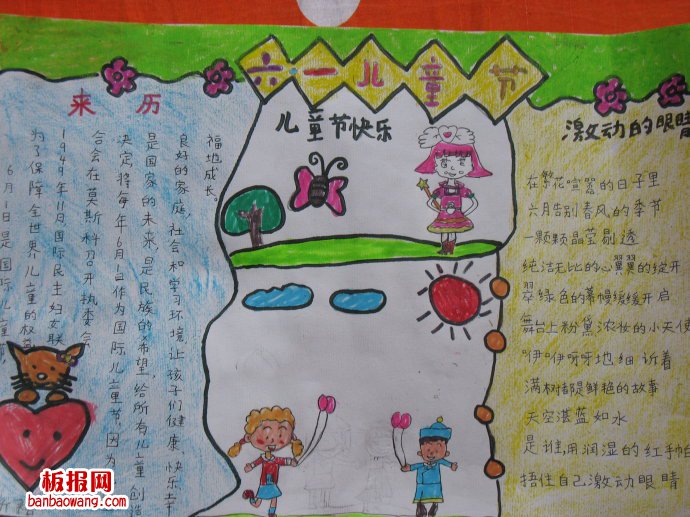 六一儿童节
来历
6月1日是国际儿童
为了保障全世界儿童的权
1949年11月国际民主妇女联
合会在莫斯科召开执委会
决定将每年6月1日作为国际儿童节,因为
是国家的未来,是民族的希望,给所有儿童创造
良好的家庭,社会和学习环境让孩子们健康、快乐、幸
福地成长。
儿童节快乐
激动的眼睛
在繁花喧嚣的日子里
六月告别春风的季节
一颗颗晶莹剔透
纯洁无比的心翼翼的绽开
翠绿色的幕幔缓缓开启
舞台上粉黛浓妆的小天使
"咿"咿呀呀地细诉着
满树都是鲜艳的故事
天空湛蓝如水
是谁,用润湿的红手帕
捂住自己激动眼睛
板报网
banbaowang.com